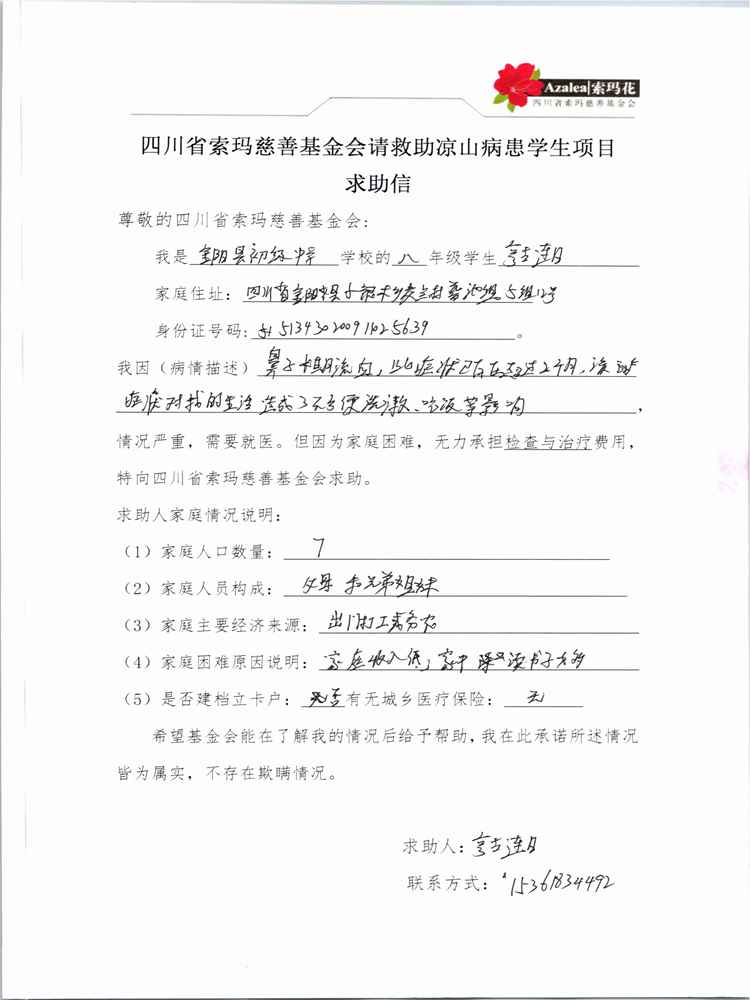 Azalea 索玛花
四川省索玛慈善基金会
四川省索玛慈善基金会请救助凉山病患学生项目
求助信
尊敬的四川省索玛慈善基金会:
我是 金阳县初级中学 学校的 八 年级学生
家庭住址:四川省金阳县 5组12号
身份证号码: 513430200911025639 。
我因(病情描述)鼻子长期流血,此症状已存在 2个月,该
症状对我的生活造成了不方便洗漱、吃饭等影响,
情况严重,需要就医。但因为家庭困难,无力承担检查与治疗费用,
特向四川省索玛慈善基金会求助。
求助人家庭情况说明:
(1)家庭人口数量: 7
(2)家庭人员构成: 父母 和兄弟姐妹
(3)家庭主要经济来源: 出门打工务农
(4)家庭困难原因说明: 家庭收入低,家中 读书子女多
(5)是否建档立卡户: 否 有无城乡医疗保险: 无
希望基金会能在了解我的情况后给予帮助,我在此承诺所述情况
皆为属实,不存在欺瞒情况。
求助人:
联系方式: 15361834492